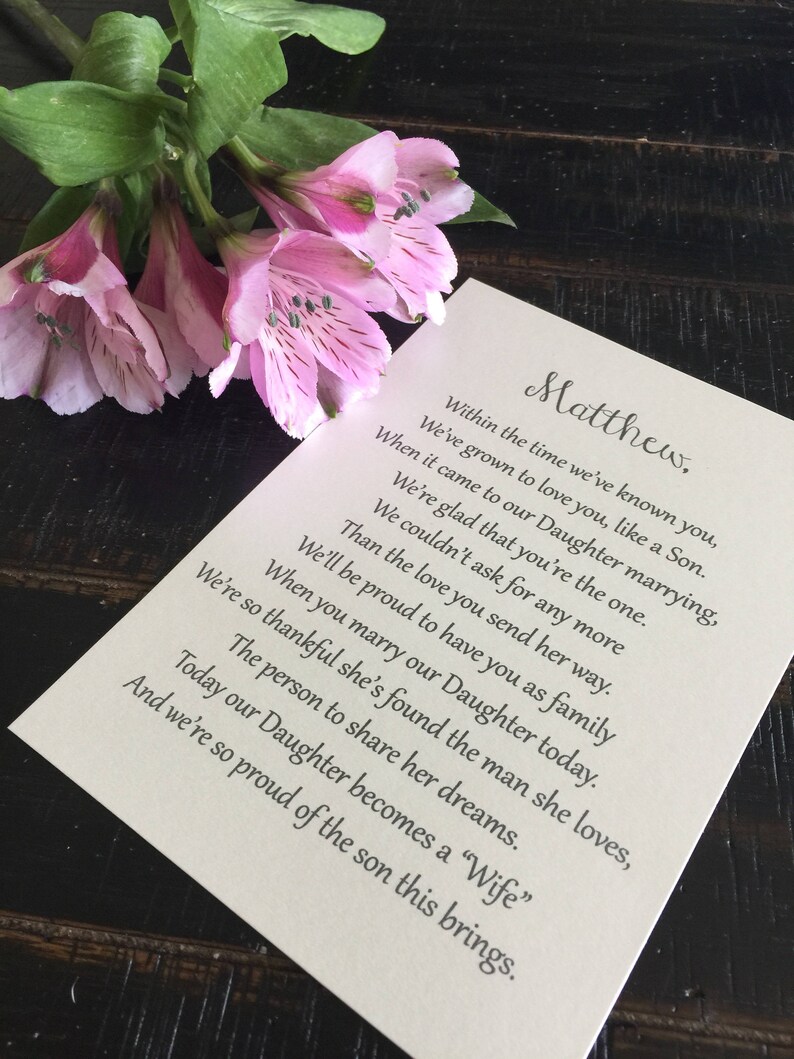 Matthew,
Within the time we've known you,
We've grown to love you, like a Son.
When it came to our Daughter marrying,
We're glad that you're the one.
We couldn't ask for any more
Than the love you send her way.
We'll be proud to have you as family
When you marry our Daughter today.
We're so thankful she's found the man she loves,
The person to share her dreams.
Today our Daughter becomes a "Wife"
And we're so proud of the son this brings.